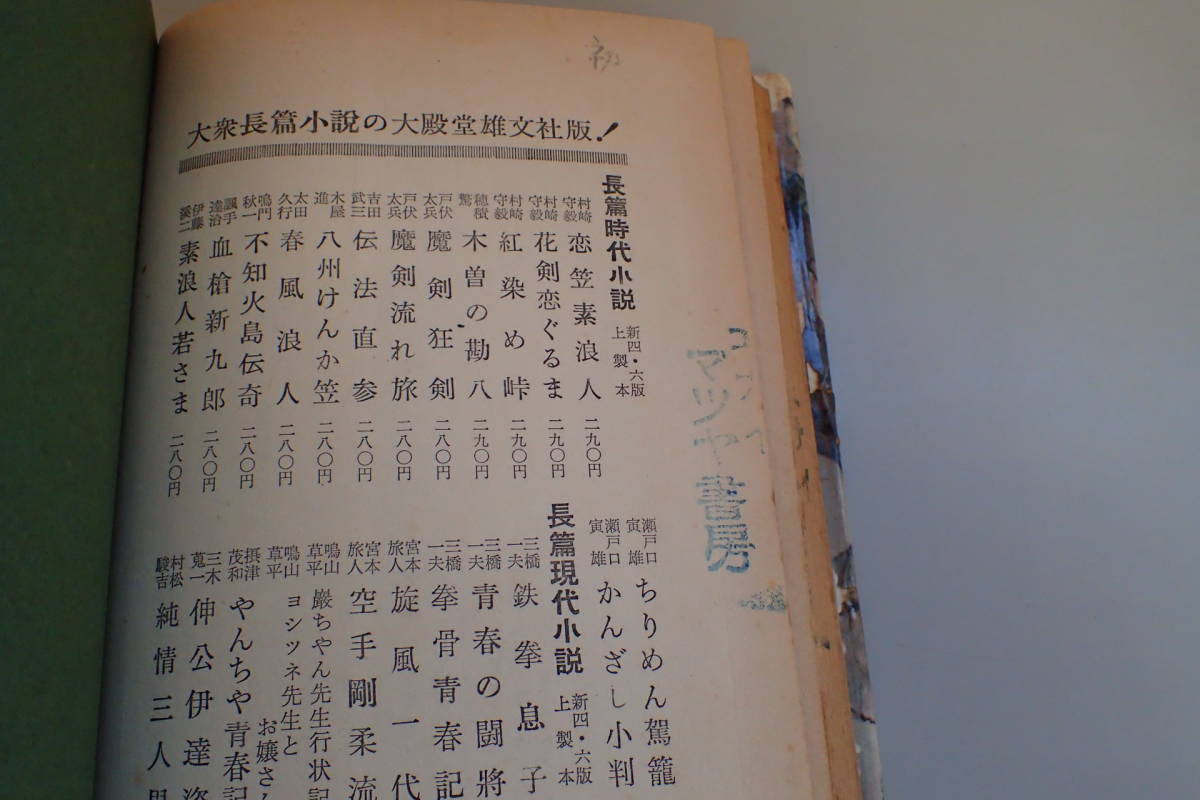 初
大衆長篇小説の大殿堂雄文社版！
長篇時代小説 新四・六版 上製本
村崎守毅 恋笠素浪人 二九〇円
村崎守毅 花剣恋ぐるま 二九〇円
村崎守毅 紅染め峠 二九〇円
穂積驚 木曽の勘八 二九〇円
戸伏太兵 魔剣狂剣 二八〇円
戸伏太兵 魔剣流れ旅 二八〇円
吉田武三 伝法直参 二八〇円
木屋進 八州けんか笠 二八〇円
太田久行 春風浪人 二八〇円
鳴門秋一 不知火島伝奇 二八〇円
颯手達治 血槍新九郎 二八〇円
伊藤溪二 素浪人若さま 二八〇円
瀬戸口寅雄 ちりめん駕籠
瀬戸口寅雄 かんざし小判
長篇現代小説 新四・六版 上製本
三橋一夫 鉄拳息子
三橋一夫 青春の闘將
三橋一夫 拳骨青春記
宮本旅人 旋風一代
宮本旅人 空手剛柔流
鳴山草平 巖ちやん先生行状記
鳴山草平 ヨシツネ先生とお嬢さん
摂津茂和 やんちや青春記
三木蒐一 伸公伊達姿
村松駿吉 純情三人男
マツヤ書房